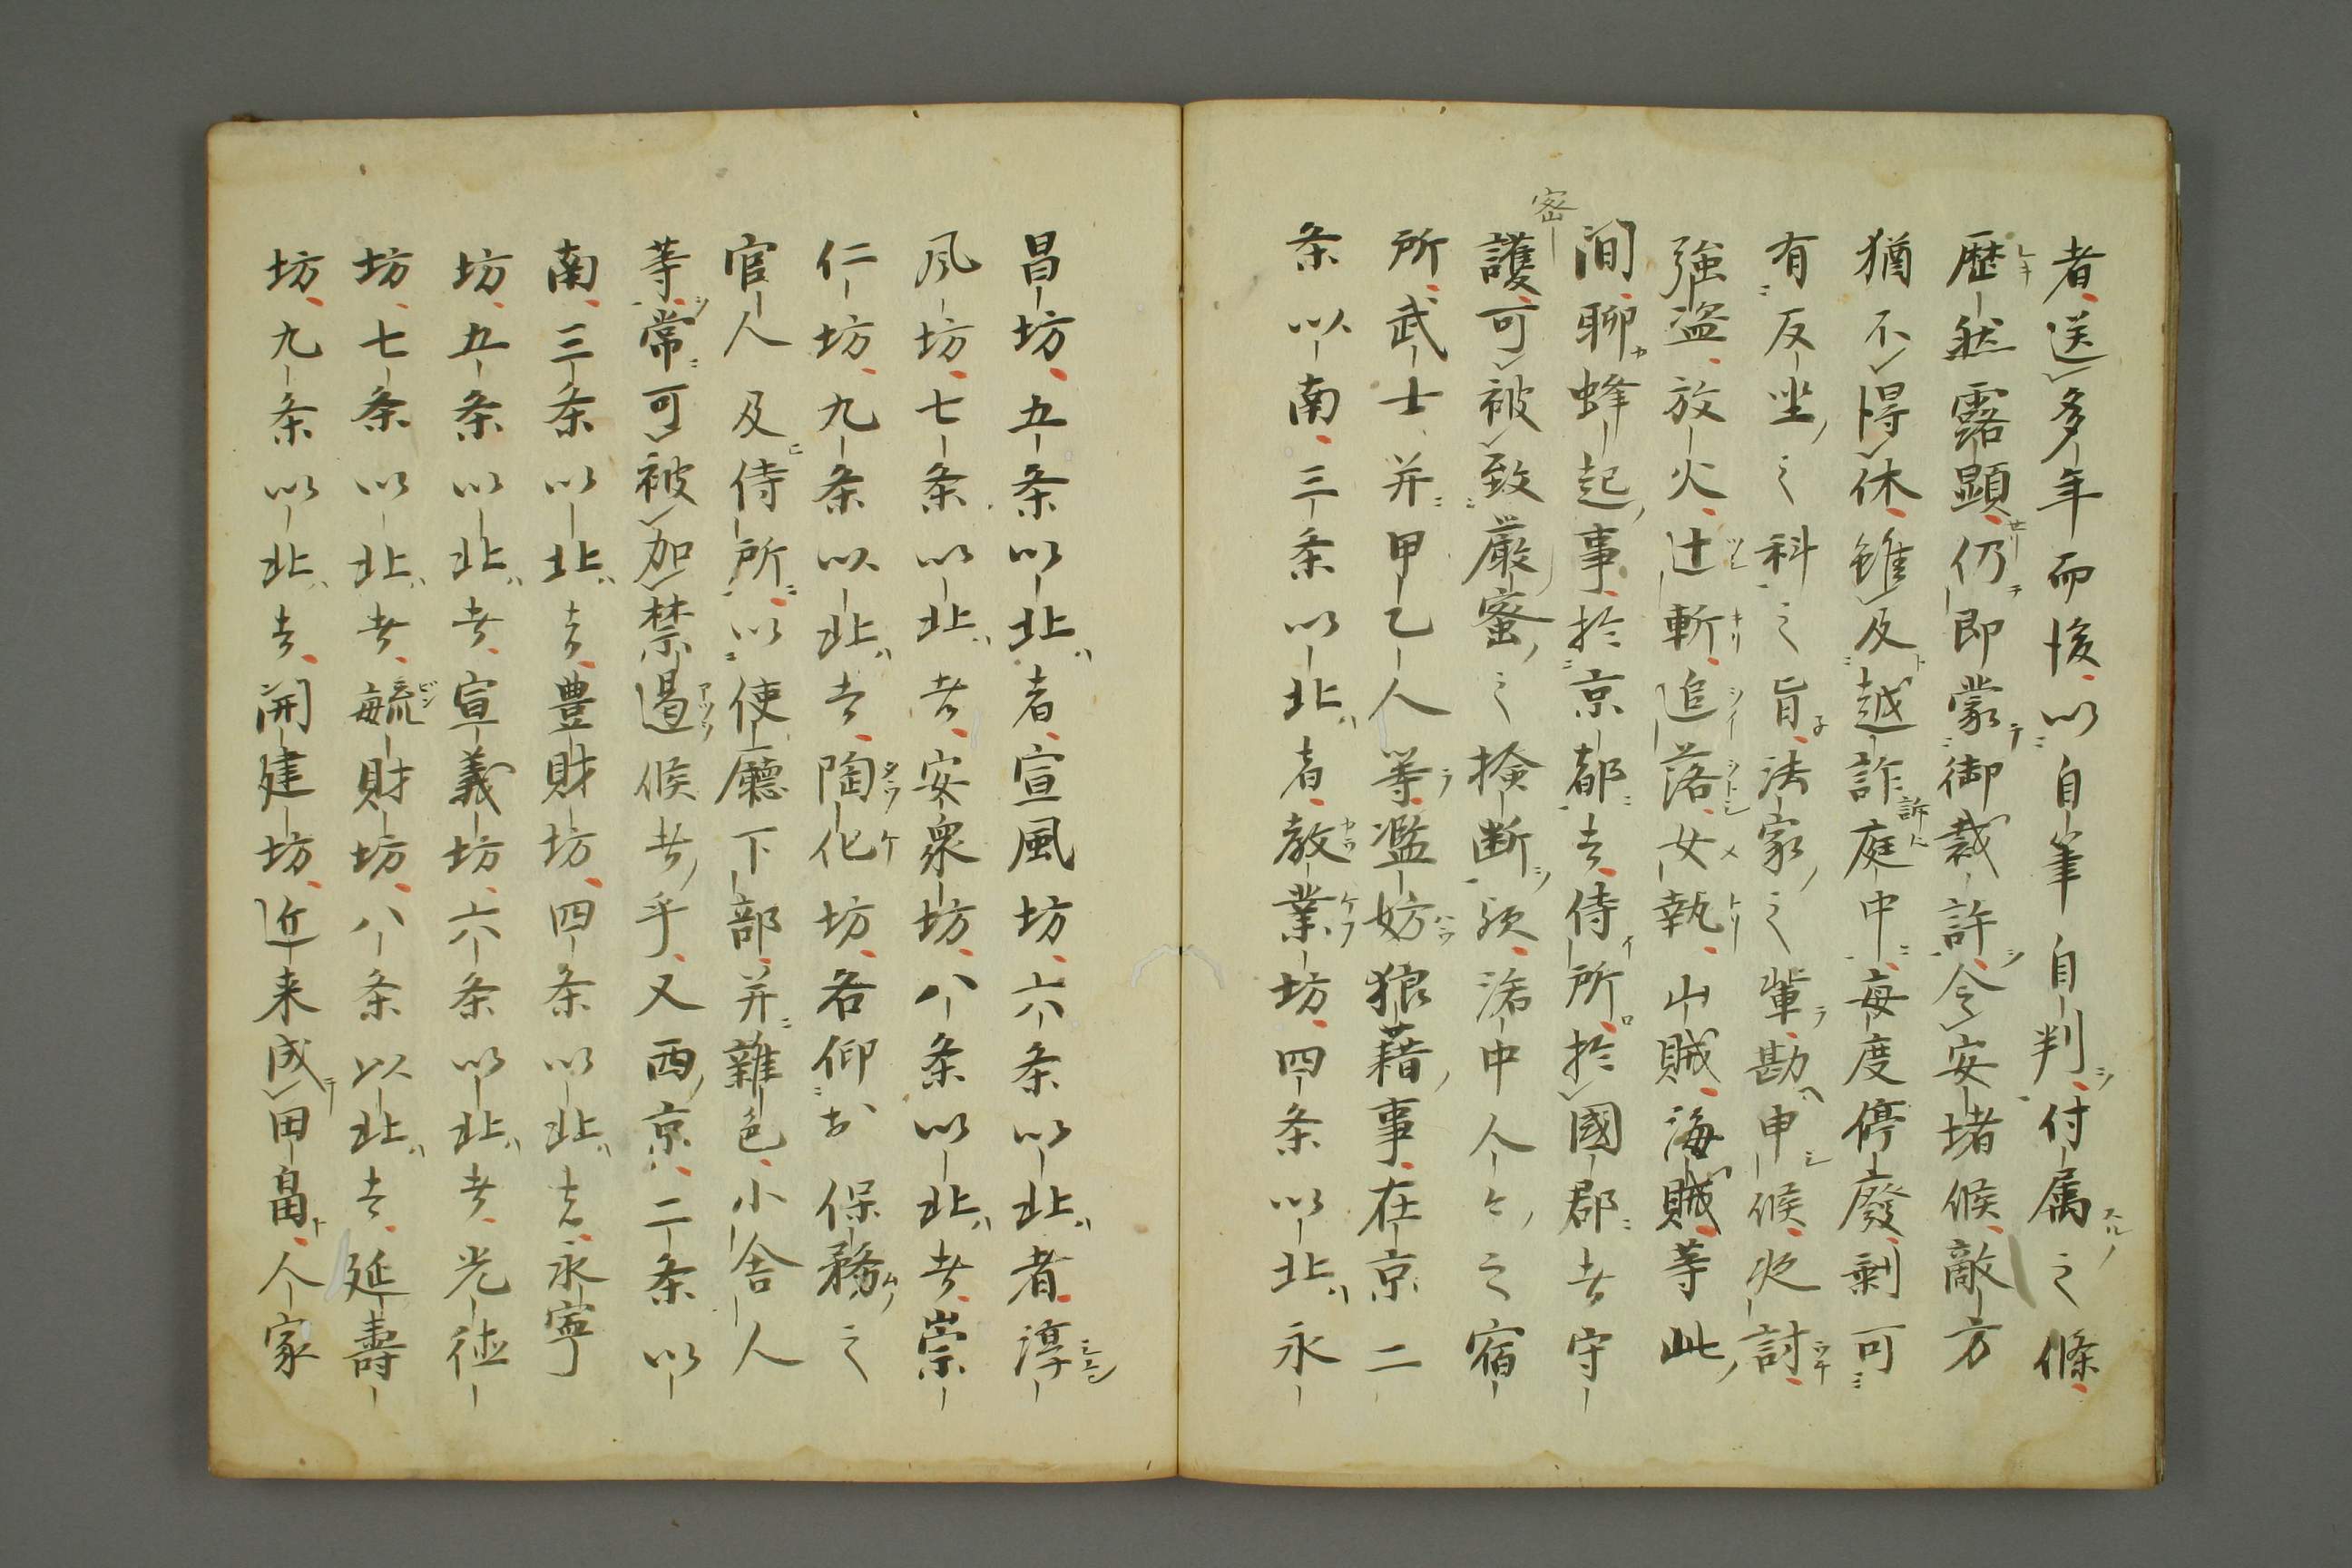 者送多年而後以自筆自判付属之條
歴然露顕仍即蒙御裁許令安堵候敵方
猶不得休雖及越詐庭中毎度停廃剰可
有反坐之科之旨法家之輩勘申候夜討
強盗放火辻斬追落女執山賊海賊等此
間聊蜂起事於京都者侍所於國郡者守
護可被致厳蜜之検断欤洛中人々之宿
所武士并甲乙人等濫妨狼藉事在京二
条以南三条以北者教業坊四条以北永
昌坊五条以北者宣風坊六条以北者淳
風坊七条以北者安衆坊八条以北者崇
仁坊九条以北者陶化坊各仰於保務之
官人及侍所以使廳下部并雜色小舎人
等常可被加禁遏候者乎又西京二条以
南三条以北者豊財坊四条以北者永寧
坊五条以北者宣義坊六条以北者光徳
坊七条以北者毓財坊八条以北者延壽
坊九条以北者開建坊近来成田畠人家